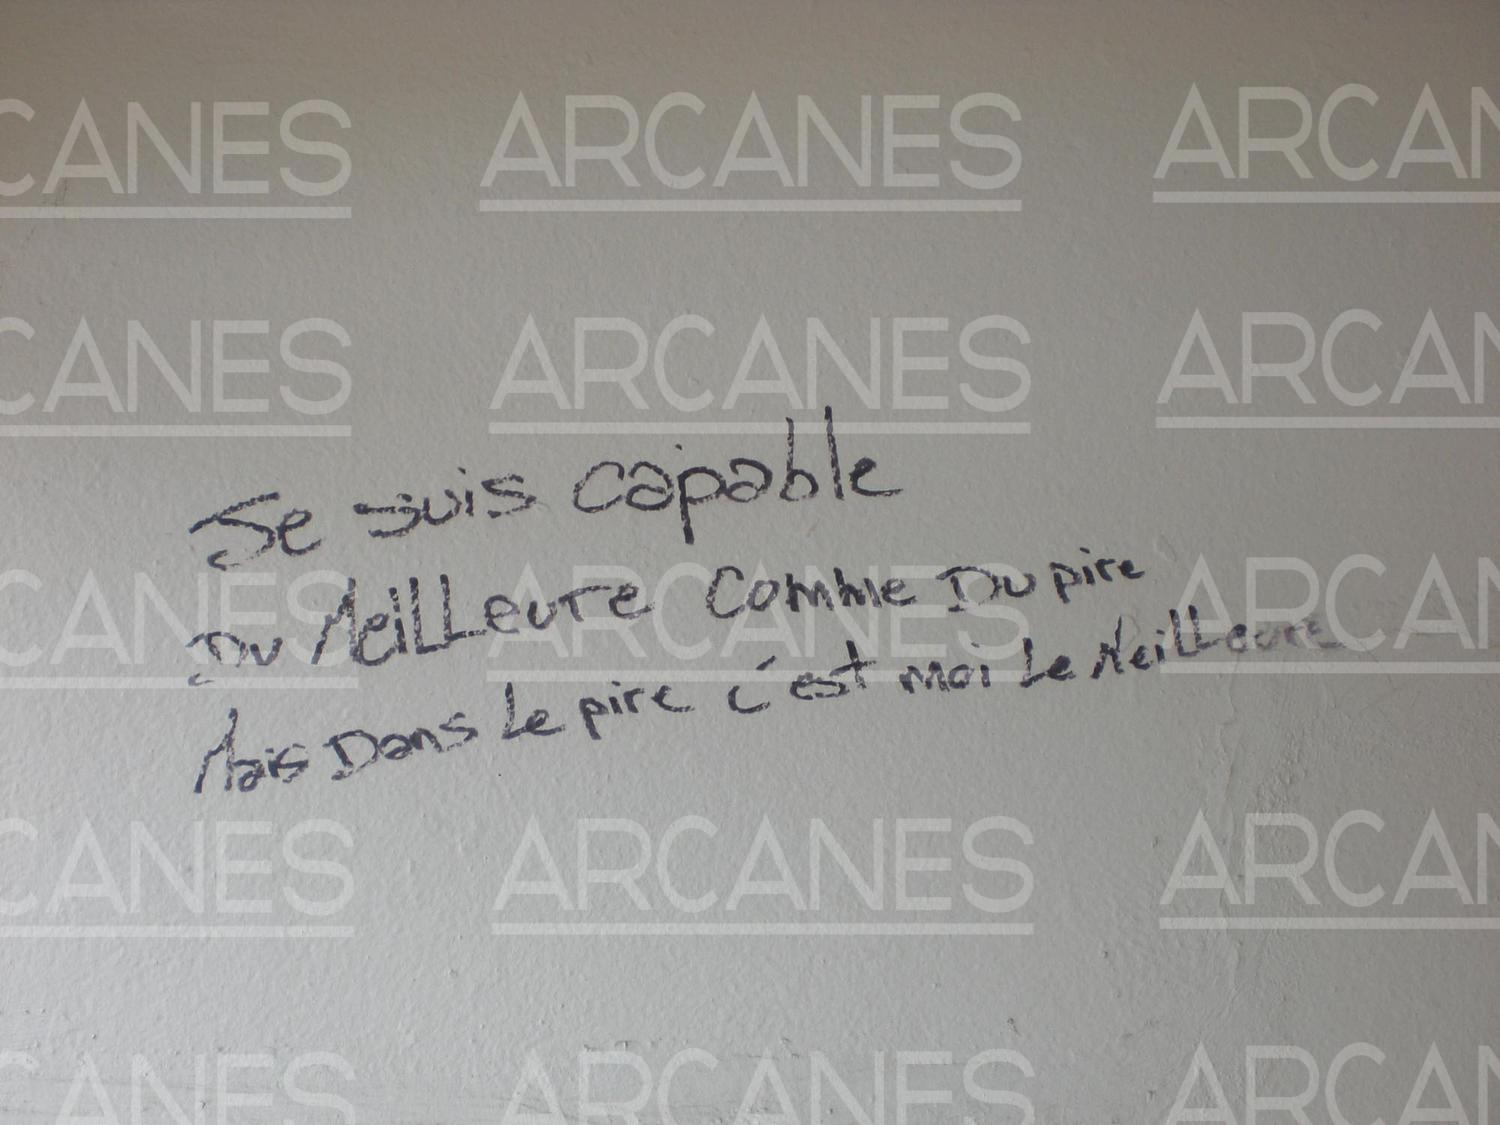 CANES ARCANES ARCAN
CANES ARCANES ARCAN
Je suis capable
CANES ARCANES ARCAN
Du MeiLLeure Comme Du pire
Mais Dans Le pire c'est moi Le MeiLLeure
CANES ARCANES ARCAN
CANES ARCANES ARCAN